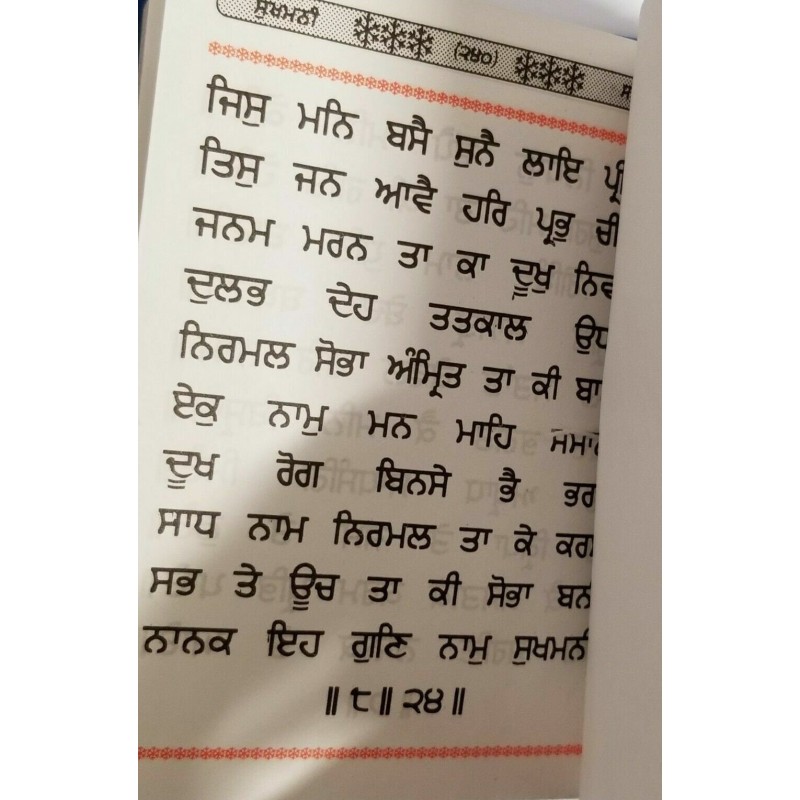 ਸੁਖਮਨੀ (੨੪੦)
ਜਿਸੁ ਮਨਿ ਬਸੈ ਸੁਨੈ ਲਾਇ
ਤਿਸੁ ਜਨ ਆਵੈ ਹਰਿ ਪ੍ਰਭੁ
ਜਨਮ ਮਰਨ ਤਾ ਕਾ ਦੂਖੁ
ਦੁਲਭ ਦੇਹ ਤਤਕਾਲ
ਨਿਰਮਲ ਸੋਭਾ ਅੰਮ੍ਰਿਤ ਤਾ ਕੀ
ਏਕੁ ਨਾਮੁ ਮਨ ਮਾਹਿ
ਦੂਖ ਰੋਗ ਬਿਨਸੇ ਭੈ
ਸਾਧ ਨਾਮ ਨਿਰਮਲ ਤਾ ਕੇ
ਸਭ ਤੇ ਊਚ ਤਾ ਕੀ ਸੋਭਾ
ਨਾਨਕ ਇਹ ਗੁਣਿ ਨਾਮੁ ਸੁਖਮਨੀ
॥੮॥੨੪॥